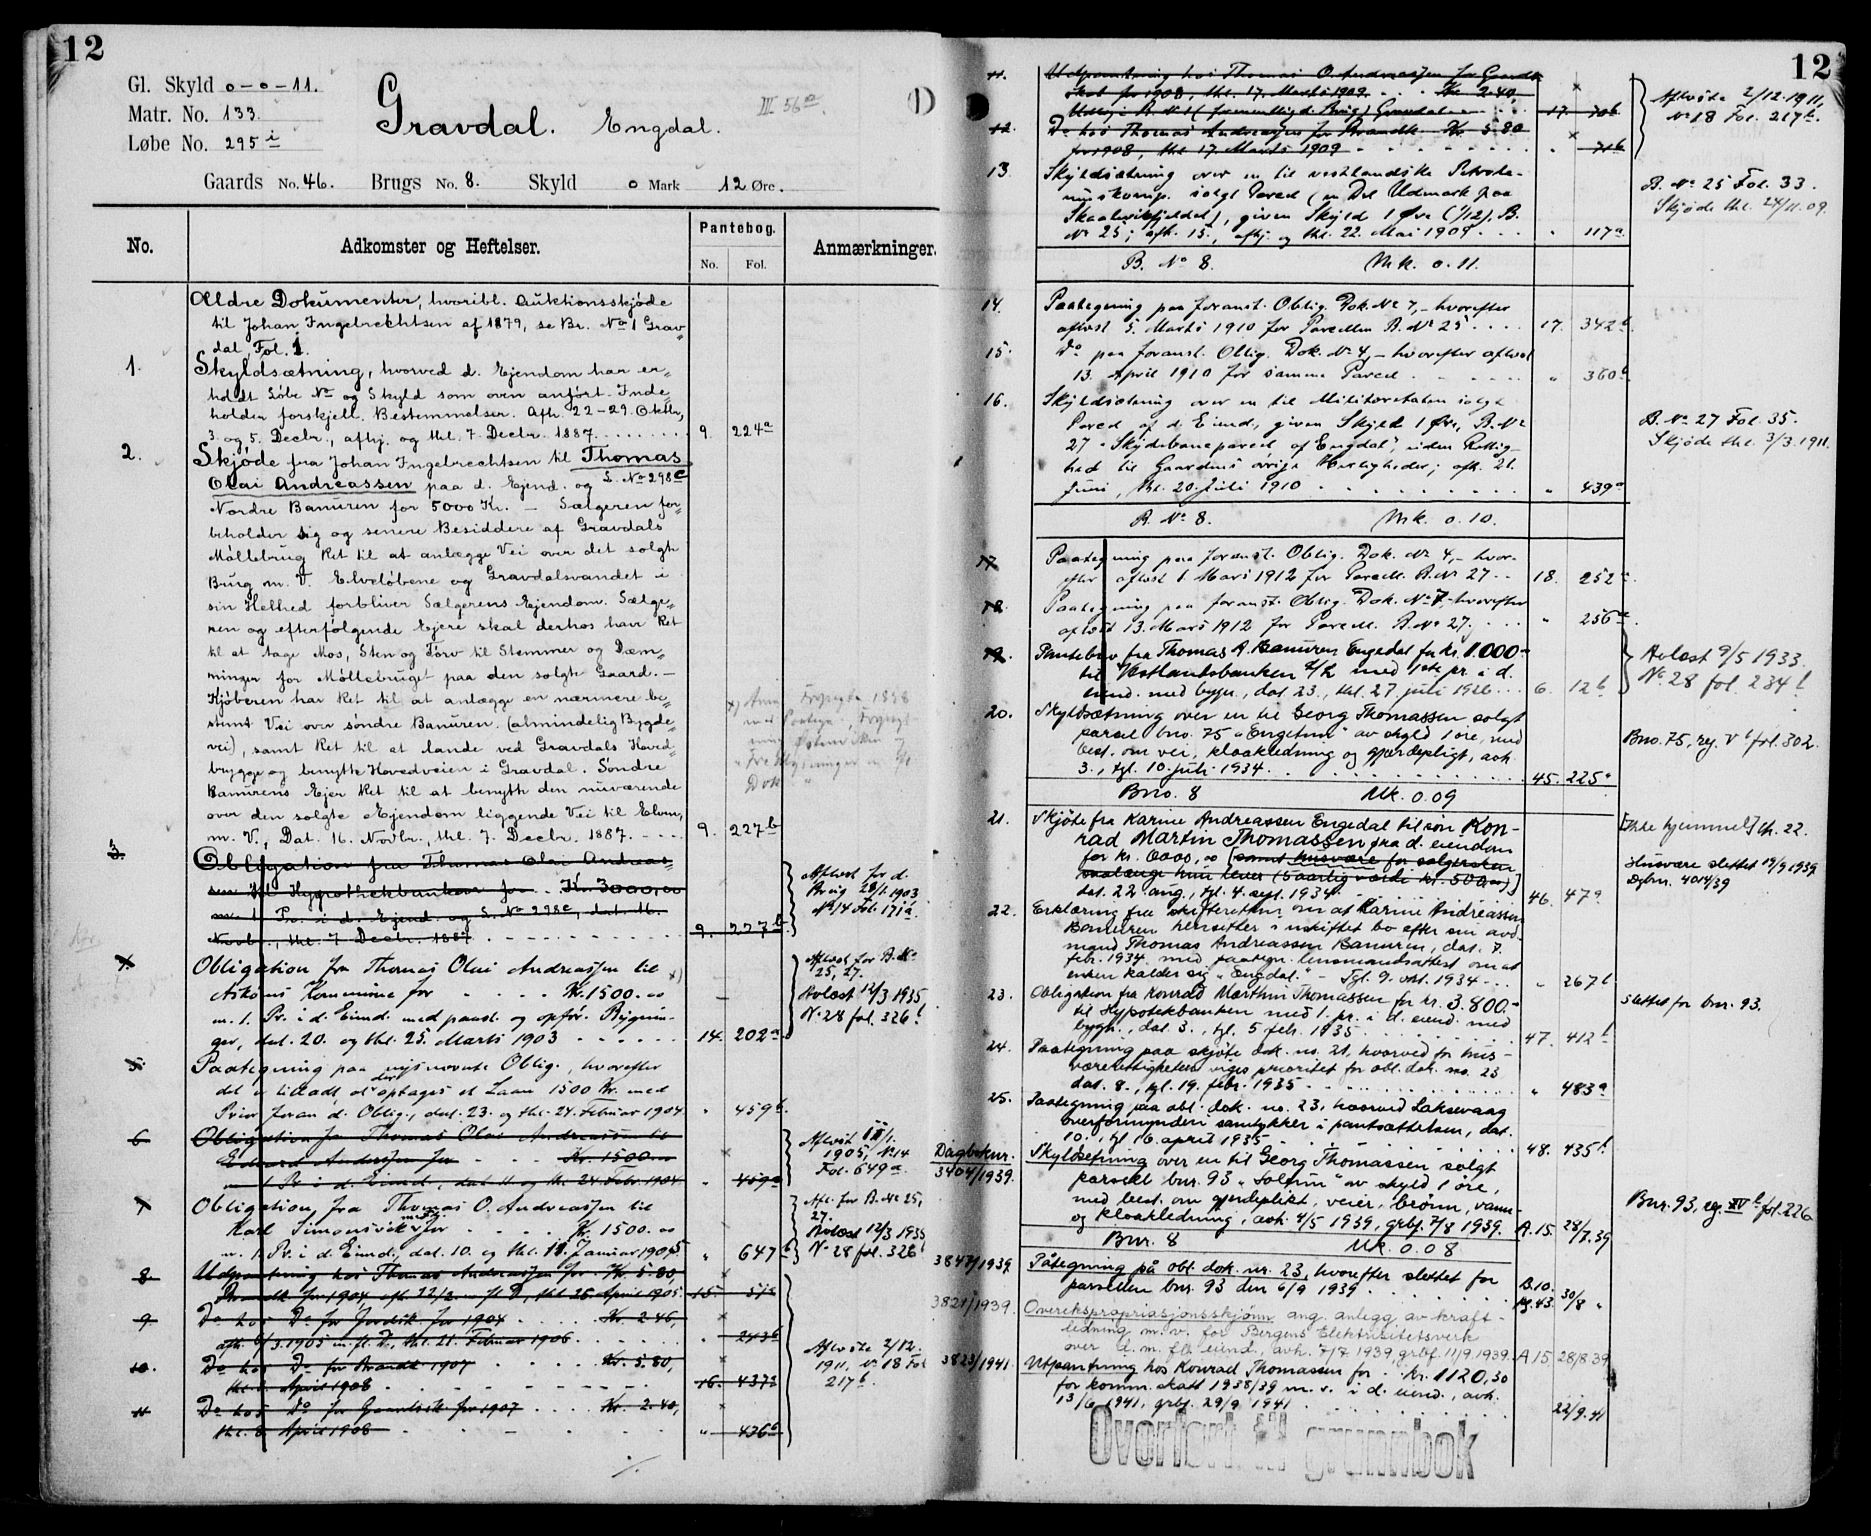 12
Gl. Skyld 0-0-11.
Matr. No. 133.
Løbe No. 295 i
Gravdal. Engdal.
III 56a
(1)
Gaards No. 46. Brugs No. 8. Skyld 0 Mark 12 Øre.
No. Adkomster og Heftelser. Pantebog. No. Fol. Anmærkninger.
Ældre Dokumenter, hvoribl. Auktionsskjøde
til Johan Ingebrechtsen af 1879, se Br. No 1 Grav
dal, Fol. 1.
1. Skyldsætning, hvorved d. Ejendom har er-
holdt Løbe No og Skyld som oven anført. Inde-
holder forskjell. Bestemmelser. Afh. 22-29. Oktbr,
3. og 5. Decbr., afhj. og thl. 7. Decbr. 1887. 9. 224a
2. Skjøde fra Johan Ingebrechtsen til Thomas
Olai Andreassen paa d. Ejend. og L. No 298c
Nordre Banuren for 5000 Kr. – Sælgeren for-
beholder sig og senere Besiddere af Gravdals
Møllebrug Ret til at anlægge Vei over det solgte
Brug m. V. Elveløbene og Gravdalsvandet i
sin Helhed forbliver Sælgerens Ejendom. Sælge-
ren og efterfølgende Ejere skal derhos have Ret
til at tage Mos, Sten og Torv til Stemmer og Dæm-
ninger for Møllebruget paa den solgte Gaard. –
Kjøberen har Ret til at anlægge en nærmere be-
stemt Vei over søndre Banuren (almindelig Bygde-
vei), samt Ret til at lande ved Gravdals Hoved-
brygge og benytte Hovedveien i Gravdal. Søndre
Banurens Ejer Ret til at benytte den nuværende
over den solgte Ejendom liggende Vei til Elven,
m. V., Dat. 16. Novbr., thl. 7. Decbr. 1887. 9. 227b
3. Obligation fra Thomas Olai Andreas-
sen til Hypothekbanken for Kr. 3000,00
m. 1. Pr. i d. Ejend. og L. No 298c, dat. 16.
Novbr., thl. 7. Decbr. 1887 9. 227b
Aflæst for d.
Brug 28/1 1903
No 14 Fol. 171a.
4. Obligation fra Thomas Olai Andreassen til
Askøens Kommune for Kr. 1500.00
m. 1. Pr. i d. Eiend. med paast. og opfør. Bygnin-
ger, dat. 20. og thl. 25. Marts 1903 14. 202a
Aflæst for B. No
25, 27.
Avlæst 12/3 1935
No 28 fol. 326b
5. Paategning paa nysnævnte Oblig., hvorefter
det er tilladt, at der optages et Laan 1500 Kr. med
Prior. foran d. Oblig., dat. 23. og thl. 24. Februar 1904 " 459b
6 Obligation fra Thomas Olai Andreassen til
Edvard Andersen for Kr. 1500.00
m. 1. Pr. i d. Eiend., dat. 11 og thl. 24. Febr. 1904 " 459a
1905, No 14
Fol. 649a
7 Obligation fra Thomas O. Andreassen til
Karl Simonsvik for Kr. 1500.00
m. 1. Pr. i d. Eiend., dat. 10. og thl. 11. Januar 1905 " 647
Afl. for B. No 25,
27.
Avlæst 12/3 1935
No 28 fol. 326b
8 Udpantning hos Thomas Andreassen for Kr. 5.80,
Brandk. for 1904, afh. 22/2 m. fl. D., thl. 25. April 1905. 15.
9. Do hos Do for Jordsk. for 1904 Kr. 2.46,
afh. 6/3 1905 m. fl. D., thl. 21. Februar 1906 " 243b
10. Do hos Do for Brandk. 1907 Kr. 5.80,
April 1908 16. 437a
11 Do hos Do for Grundsk. for 1907 Kr. 2.40,
thl. 8. April 1908 " 436b
Afløste 2/12.
1911, No 18 Fol
217b.
12
11. Udpantning hos Thomas O. Andreassen for Grunds
Skat for 1908, thl. 17. Marts 1909. Kr. 2.40,
17. 70b
12. Do hos Thomas Andreassen for Brandk. Kr. 5.80
for 1908, thl. 17. Marts 1909 " 71b
Afløste 2/12. 1911,
No 18 Fol. 217b.
13. Skyldsætning over en til vestlandske Petrole-
umskomp. solgt Parcel (en Del Udmark paa
Skaalevikfjeldet), given Skyld 1 Øre (1/12), B.
No 25; afh. 15., afhj. og thl. 22. Mai 1909 " 117a
B. No 25 Fol. 33.
Skjøde thl. 24/11. 09.
B. No 8. Mk. 0.11.
14. Paategning paa foranst. Oblig. Dok. No 7, – hvorefter
afløst 5. Marts 1910 for Parcellen B. No 25 17. 342b
15. Do paa foranst. Oblig. Dok. No 4, – hvorefter afløst
13. April 1910 for samme Parcel " 360b
16. Skyldsætning over en til Militæretaten solgt
Parcel af d. Eiend., given Skyld 1 Øre, B. No
27 "Skydebaneparcel af Engdal", uden Rettig-
hed til Gaardens øvrige Herligheder; afh. 21.
Juni, thl. 20. Juli 1910 " 439a
B. No 27 Fol. 35.
Skjøde thl. 3/3. 1911.
B. No 8. Mk. 0.10.
17 Paategning paa foranst. Oblig. Dok. No 4, – hvor-
efter afløst 1. Mars 1912 for Parcell. B. No 27 18. 252a
18. Paategning paa foranst. Oblig. Dok. No 7, – hvorefter
afløst 13. Mars 1912 for Parcell. B. No 27. " 256a
19. Pantebrev fra Thomas A. Banuren Engedal for kr. 1.000-
til Vestlandsbanken A/L med 1ste pr. i d.
eiend. med bygn., dat. 23., thl. 27. juli 1926 6. 12b
Avlæst 9/5 1933.
No 28 fol. 234b
20. Skyldsætning over en til Georg Thomassen solgt
parsel bno. 75 "Engetun" av skyld 1 øre, med
best. om vei, kloakledning og gjerdepligt, avh.
3., tgl. 10. juli 1934. 45. 225a
Bno. 75, reg. V b fol. 302.
Bno. 8 Mk. 0.09
21. Skjøte fra Karine Andreassen Engedal til søn Kon-
rad Martin Thomassen paa d. eiendom
for kr. 6000,00 [samt husvære for selgersken
saalænge hun lever (5 aarlig værdi kr. 500,00)]
dat. 22. aug., tgl. 4. sept. 1934. 46. 47a
[Ikke hjemmel] cfr. 22.
Husvære slettet 19/9 1939
Dgbnr. 4014/39
22. Erklæring fra skifteretten om at Karine Andreassen
Banuren hensitter i uskiftet bo efter sin avd.
mand Thomas Andreassen Banuren, dat. 7.
febr. 1934 med paategn. lensmandsattest om at
enken kalder sig "Engdal." – Tgl. 9. okt. 1934 " 267b
23. Obligation fra Konrad Marthin Thomassen for kr. 3.800.-
til Hypotekbanken med 1. pr. i d. eiend. med
bygn., dat. 3., tgl. 5 febr. 1935 47. 412b
Slettet for bnr. 93.
24. Paategning paa skjøte dok. no. 21, hvorved for hus-
værerettigheten viges prioritet for obl. dok. no. 23
dat. 8., tgl. 19. febr. 1935 " 483a
25. Paategning paa obl. dok. no. 23, hvorved Laksevaag
overformynderi samtykker i pantsættelsen, dat.
10., tgl 16. april 1935 48. 435b
Dagboknr.
3404/1939. Skyldsetning over en til Georg Thomassen solgt
parsell bnr. 93 "Soltun" av skyld 1 øre,
med best. om gjerdeplikt, veier, brønn, vann-
og kloakledning, avh. 4/5 1939, grbf. 7/8 1939. A. 15. 28/7.39
Bnr. 93, reg. XIV b fol. 226
Bnr. 8 Mk. 0.08
3847/1939 Påtegning på obl. dok. nr. 23, hvorefter slettet for
parsellen bnr. 93 den 6/9 1939 B. 10. 30/8 "
3821/1939. Overekspropriasjonsskjønn ang. anlegg av kraft-
ledning m. v. for Bergens Elektrisitetsverk
over d. m. fl. eiend., avh. 7/7 1939, grbf. 11/9. 1939. A. 15 28/8 39
3823/1941. Utpantning hos Konrad Thomassen for kr. 1120,30
for komm. skatt 1938/39 m. v. i d. eiend., avh.
13/6 1941, grbf. 29/9 1941 22/9. 41
Overført til grunnbok